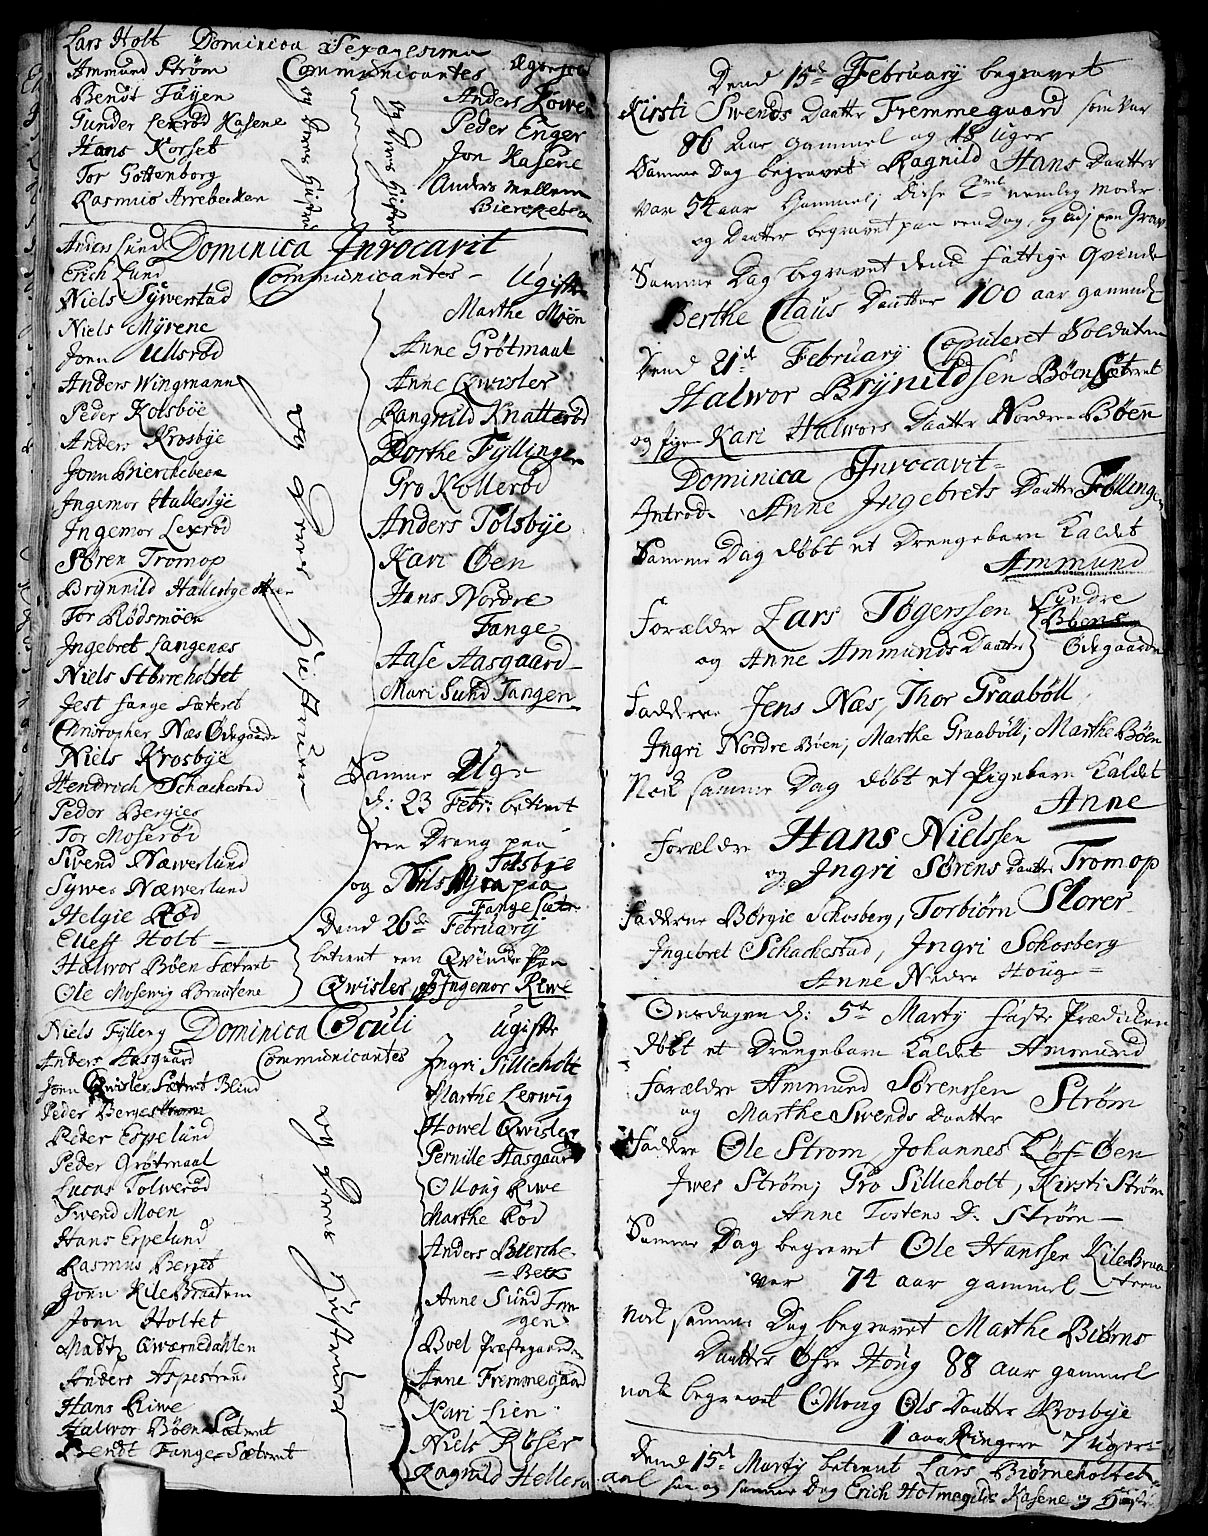 Lars Holt Dominica Sexagesima
Ammund Strøm Communicantes
Bendt Tajen
Gunder Lexrød Kasene
Hans Korset
Tor Gottenborg
Rasmus Arrebecken
og deres Hustruer
Anders Kowe
Peder Enger
Jon Kasene
Anders mellem
Bierckebek
Anders Lund Dominica Invocavit
Erich Lund Communicantes
Niels Sÿwerstad
Niels Mÿrene
Jorn Ullsrød
Anders Wingmann
Peder Kolsbøe
Anders Krosbÿe
Jorn Bierckebeck
Ingemor Hallesbÿe
Ingemor Lexrød
Søren Tromop
Brÿnnild Hallesbÿe
Tor Rødsmøen
Ingebret Langenæs
Niels Størreholtet
Jest Fange Sæteret
Christopher Næs Ødegaard
Niels Krosbÿe
Hendrech Schackestad
Peder Bergies
Tor Moserød
Swend Næwerlund
Sÿwer Næwerlund
Helgie Rød
Elleff Holt
Halwor Bøen Sætret
Ole Mosewig Braatene
og deres Hustruer
Ugifte
Marthe Moen
Anne Grøtmaal
Anne Qwisler
Rangnild Knatterød
Dorthe Fÿllingen
Gro Kollerød
Anders Tolsbÿe
Kari Øen
Hans Nordre
Fange
Aase Aasgaard
Mari Sund Tangen
Samme Uge
d: 23 Febr: betient
een Dreng paa
Tolsbÿe
og Nils Mÿra paa
Fange Sæter
Dend 26de Februarÿ
betient een Qvinde paa
Qwisler, og Ingemor Riwe
Niels Fÿlling Dominica Oculi
Anders Aasgaard Communicantes
Jorn Qwisler Sætret Blind
Peder Berge
Peder Espelund
Peder Grøtmaal
Lucas Tolwerød
Swend Moen
Hans Espelund
Rasmus Berget
Jorn Kile Braaten
Jorn Holtet
Madtz Qwærnedahlen
Anders Aspestrand
Hans Riwe
Halwor Bøen Sætret
Brendt Fange Sætret
og deres Hustruer
Ugifte
Ingri Sillieholt
Marthe Lerwig
Howel Qwisler
Pernille Aasgaard
Olloug Riwe
Marthe Rød
Anders Bierche
Beck
Anne Sund Tan
gen
Boel Præstegaarden
Anne Fremmegaard
Kari Lien
Niels Røser
Ragnild Hellesaa
Dend 15de Februarÿ begravet
Kirsti Swends Daatter Fremmegaard som var
86 aar gammel og 18 Uger
Samme Dag begravet Ragnild Hans Daatter
var 54 aar Gammel, disse 2de nemlig Moder
og Daatter begravet paa een Dag, og udj een Grav
Samme Dag begravet dend fattige Qvinde
Berthe Claus Daatter 100 aar gammel
Dend 21de Februarÿ Copuleret Soldaten
Halwor Brÿnildsen Bøen Sætret
og Pigen Kari Halwors Daatter Nordre Bøen
Dominica Invocavit
Introd: Anne Ingebrets Daatter Føllingen
Samme Dag døbt et Drengebarn kaldet
Ammund
Forældre Lars Tøgerssen
og Anne Ammunds Daatter
Søndre
Bøens
Ødegaarden
Fadderne Jens Næs, Thor Graabøll
Ingri Nordre Bøen; Marthe Graabøll; Marthe Bøen
Nock samme Dag døbt et Pigebarn kaldet
Anne
Forældre Hans Nielssen
og Ingri Sørens Daatter Tromop
Fadderne Børgie Schosberg, Torbiørn Storer
Ingebret Schackestad, Ingri Schosberg
Anne Nedre Houg
Onsdagen d: 5te Martÿ faste Prædicken
døbt et Drengebarn kaldet Ammund
Forældre Ammund Sørenssen
og Marthe Swends Daatter Strøm
Faddere Ole Strøm, Johannes Løs Øen
Iwer Strøm; Gro Sillieholt, Kirsti Strøm
Anne Tostens D. Strøm
Samme Dag begravet Ole Hanssen Kile Braa
ten
var 74 aar gammel
nock samme Dag begravet Marthe Biørns
Daatter Øfre Houg 88 aar gammel
nock begravet Olloug Ols Daatter Krosbÿe
1 aar Ringere 7 Uger
Dend 15de Martÿ betient Lars Biørneholtet
samme Dag Erich Holmegilds Kasene og